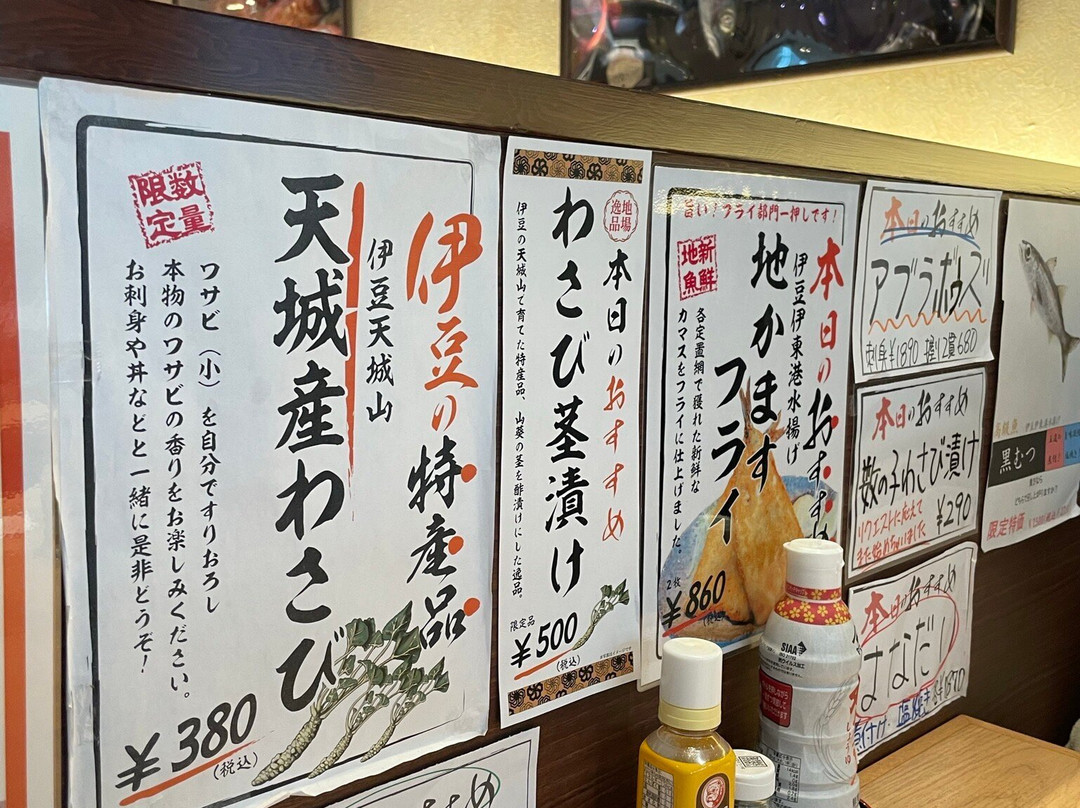 伊豆の特産品
伊豆天城山
天城産わさび
数量
限定
ワサビ（小）を自分ですりおろし
本物のワサビの香りをお楽しみください。
お刺身や丼などと一緒に是非どうぞ！
￥380
(税込)
地場
逸品
本日のおすすめ
わさび茎漬け
伊豆の天城山で育てた特産品、山葵の茎を酢漬けにした逸品。
限定品
￥500
(税込)
旨い！フライ部門一押しです！
本日のおすすめ
伊豆伊東港水揚げ
地かます
フライ
新鮮
地魚
各定置網で獲れた新鮮な
カマスをフライに仕上げました。
2枚
￥860
(税込)
本日のおすすめ
アブラボウズ
刺身￥1890 握り2貫680
本日のおすすめ
数の子わさび漬け
￥290
リクエストに応えて
また始めちゃいました
本日のおすすめ
塩焼き
高級魚
黒むつ
限定特価
SIAA
おすすめ